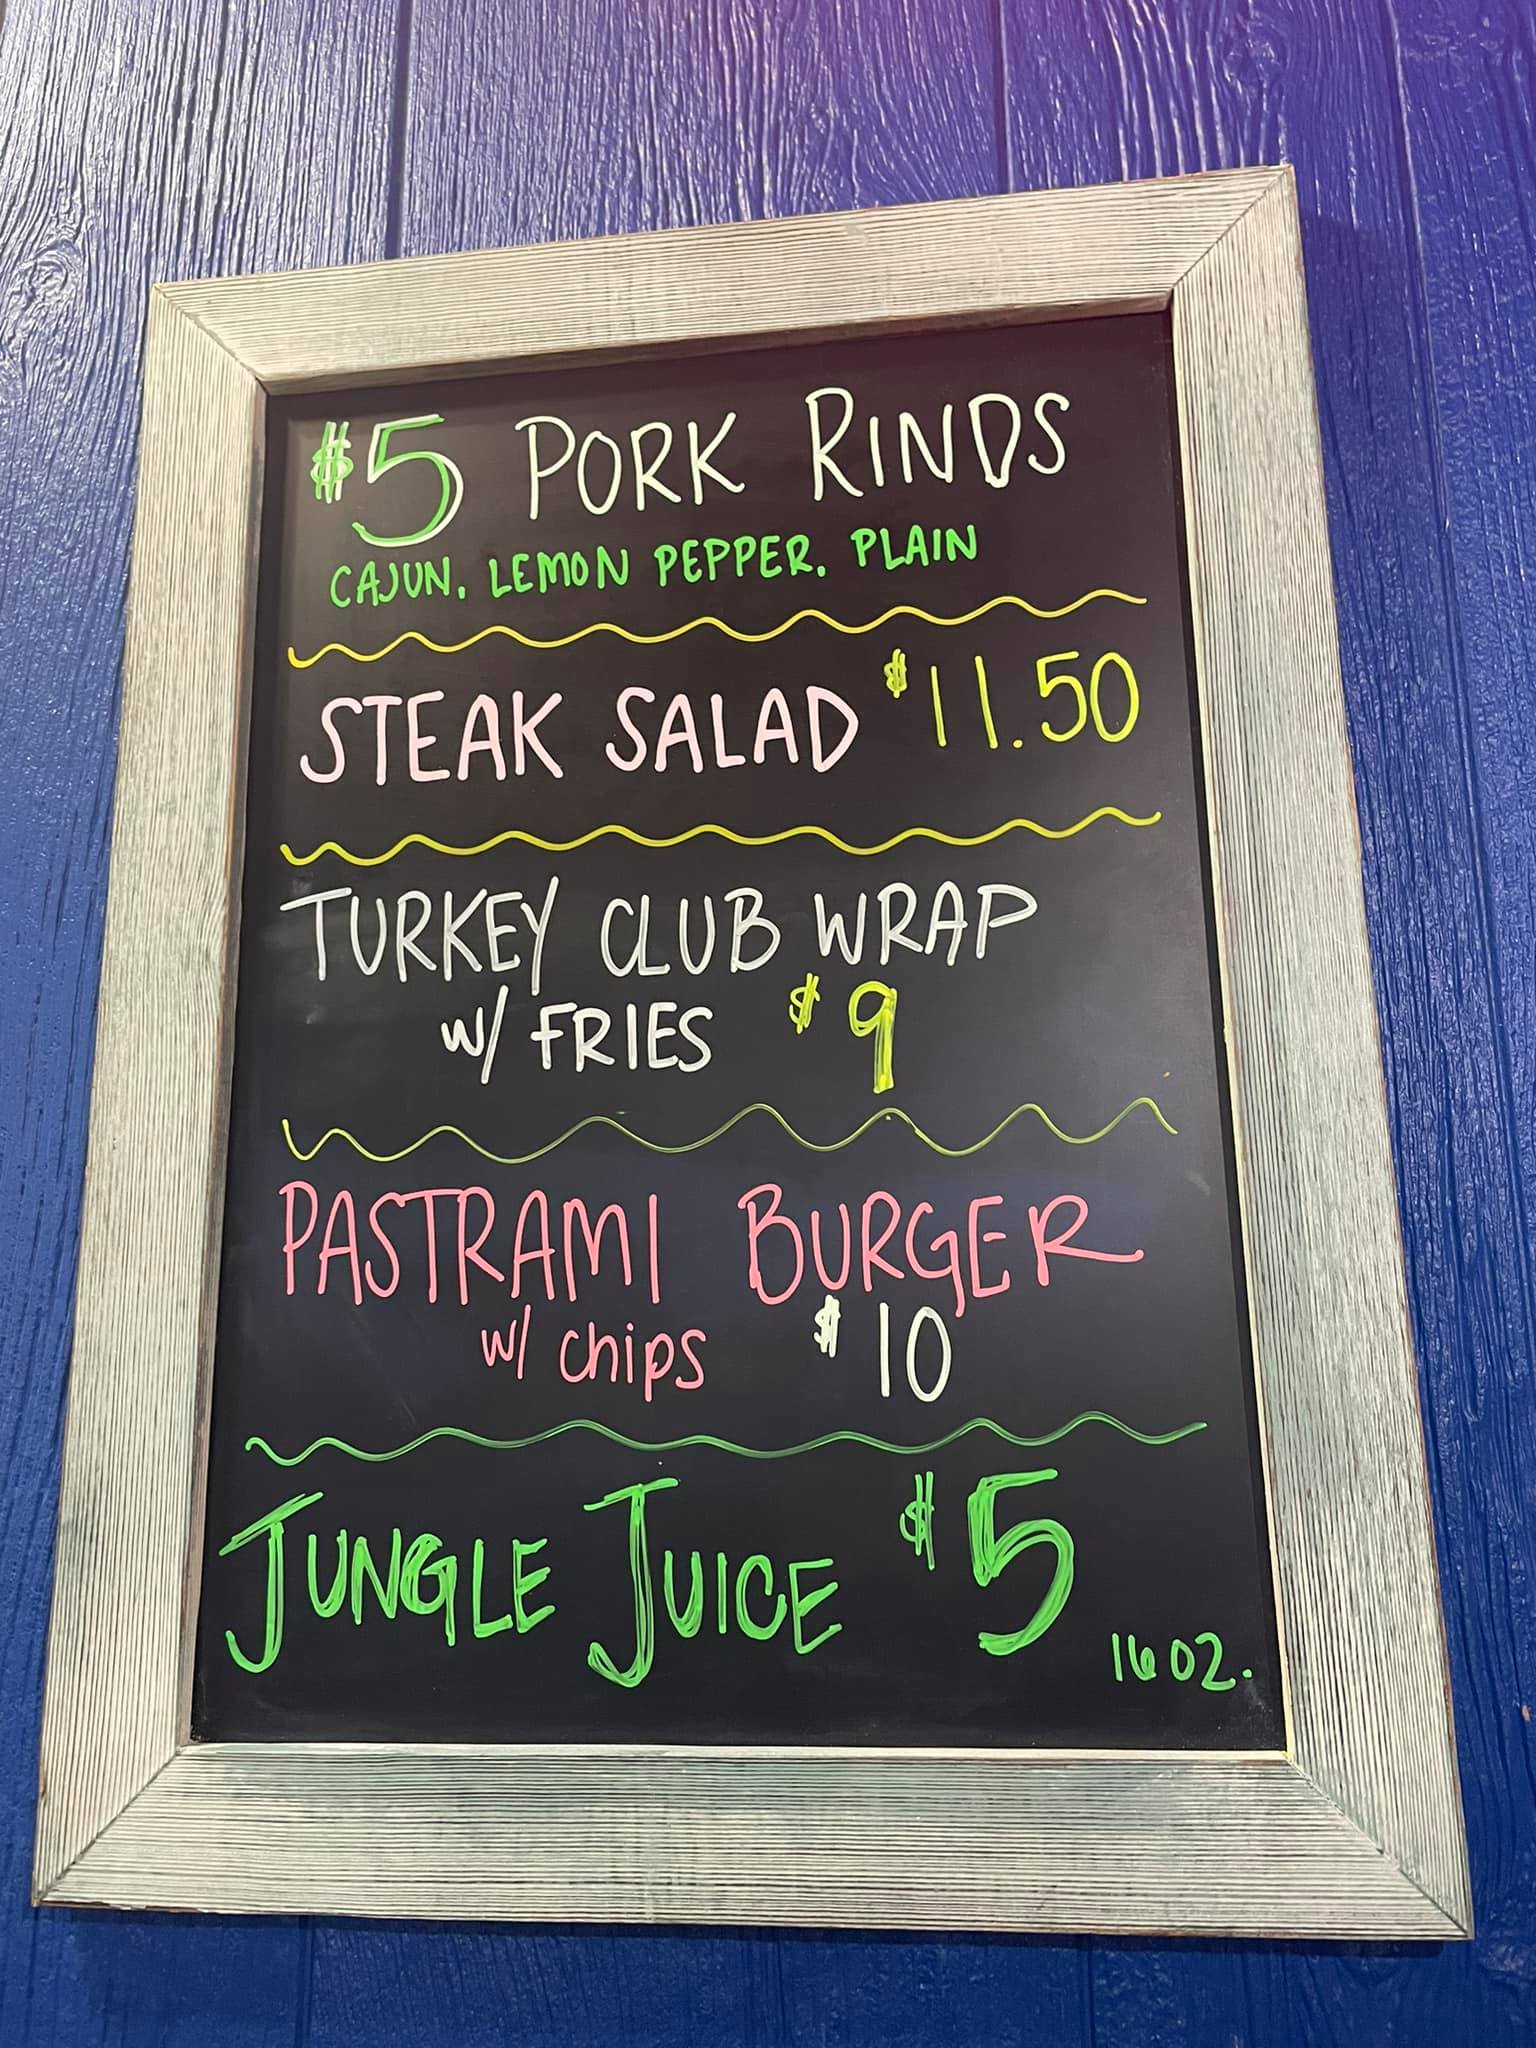 $5 PORK RINDS
CAJUN. LEMON PEPPER. PLAIN
STEAK SALAD $11.50
TURKEY CLUB WRAP
w/ FRIES $9
PASTRAMI BURGER
w/ chips $10
JUNGLE JUICE $5
16 OZ.